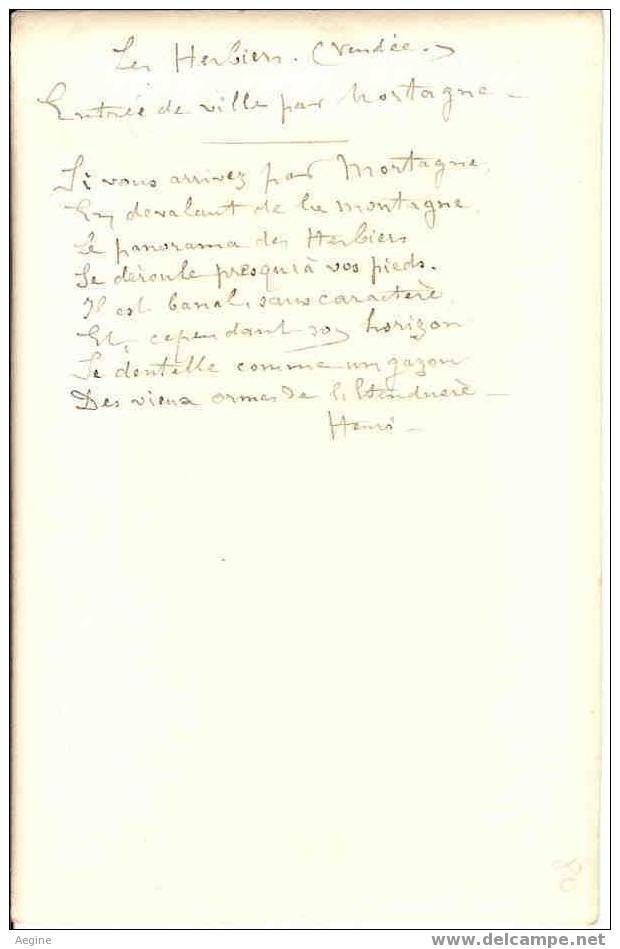 Les Herbiers. (Vendée.)
Entrée de ville par Mortagne -
Si vous arrivez par Mortagne,
En dévalant de la montagne,
Le panorama des Herbiers
Se déroule presqu'à vos pieds.
Il est banal, sans caractère,
Et, cependant son horizon
Se dentelle comme un gazon
Des vieux ormes de l'Etenduère -
Henri -
Aegine
www.delcampe.net